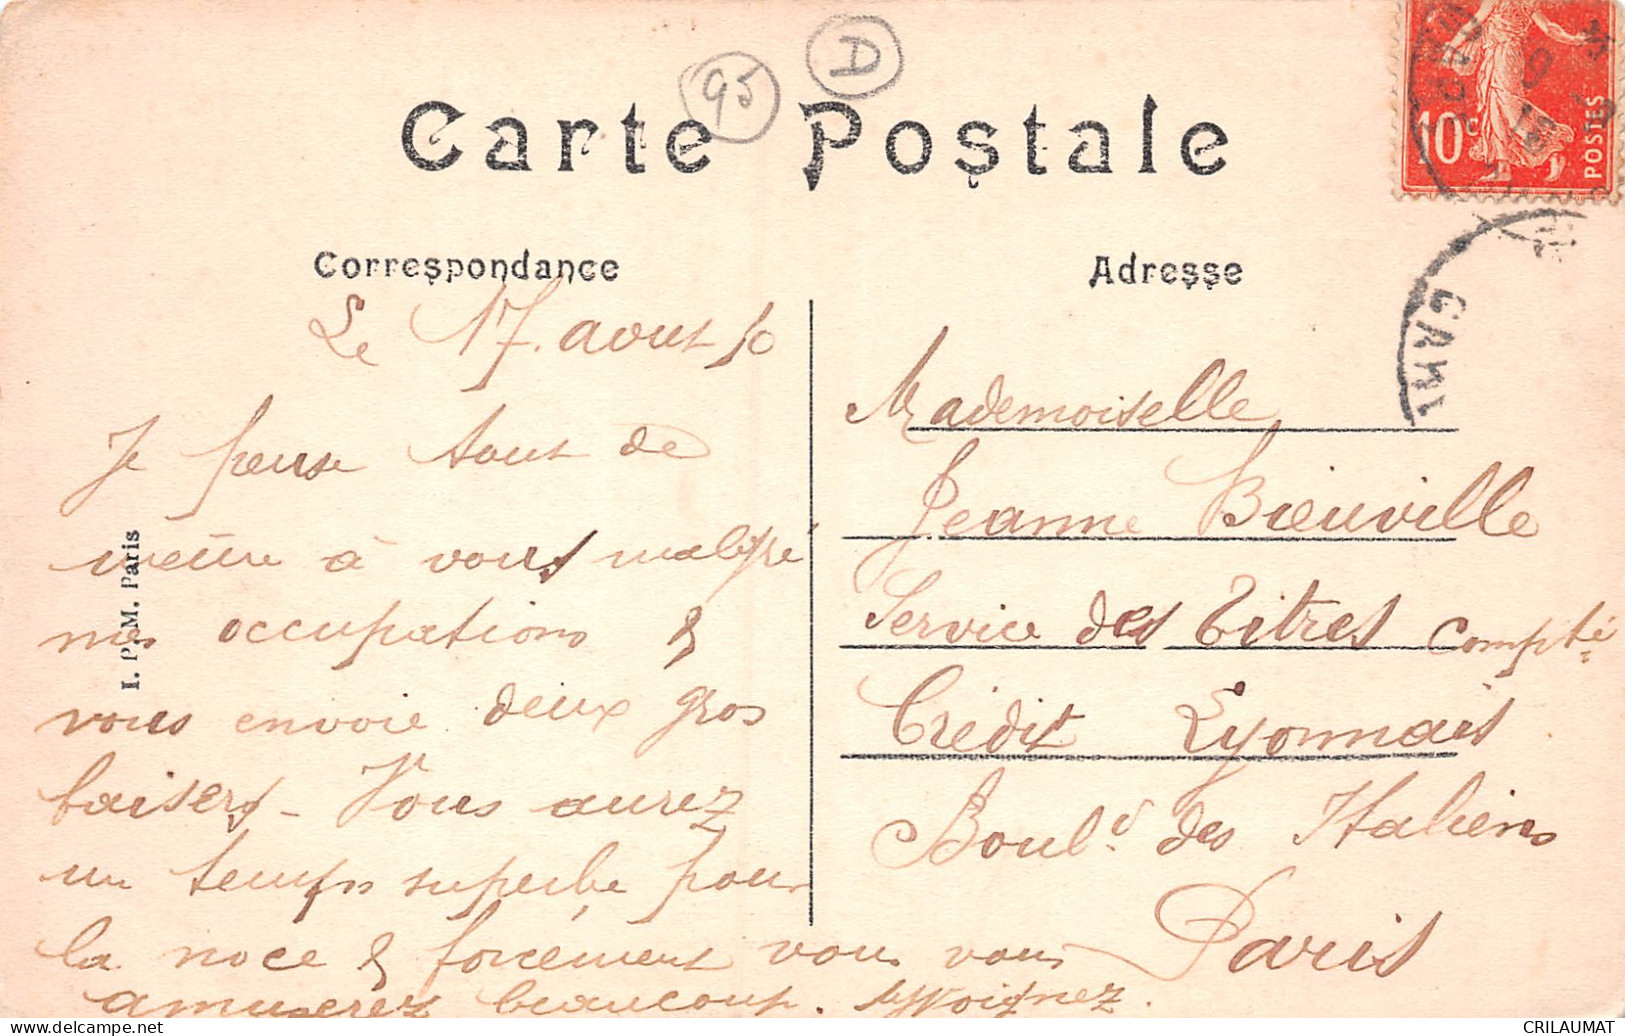 95
D
Carte Postale
10c
POSTES
Correspondance
Adresse
GRAN
Le 17 aout 10
Je pense tout de
même à vous malgré
mes occupations &
vous envoie deux gros
baisers - Vous aurez
un temps superbe pour
la noce & forcément vous vous
amuserez beaucoup.
Mademoiselle
Jeanne Bienville
Service des Titres Compté
Crédit Lyonnais
Boul.d des Italiens
Paris
I. P. M. Paris
CRILAUMAT